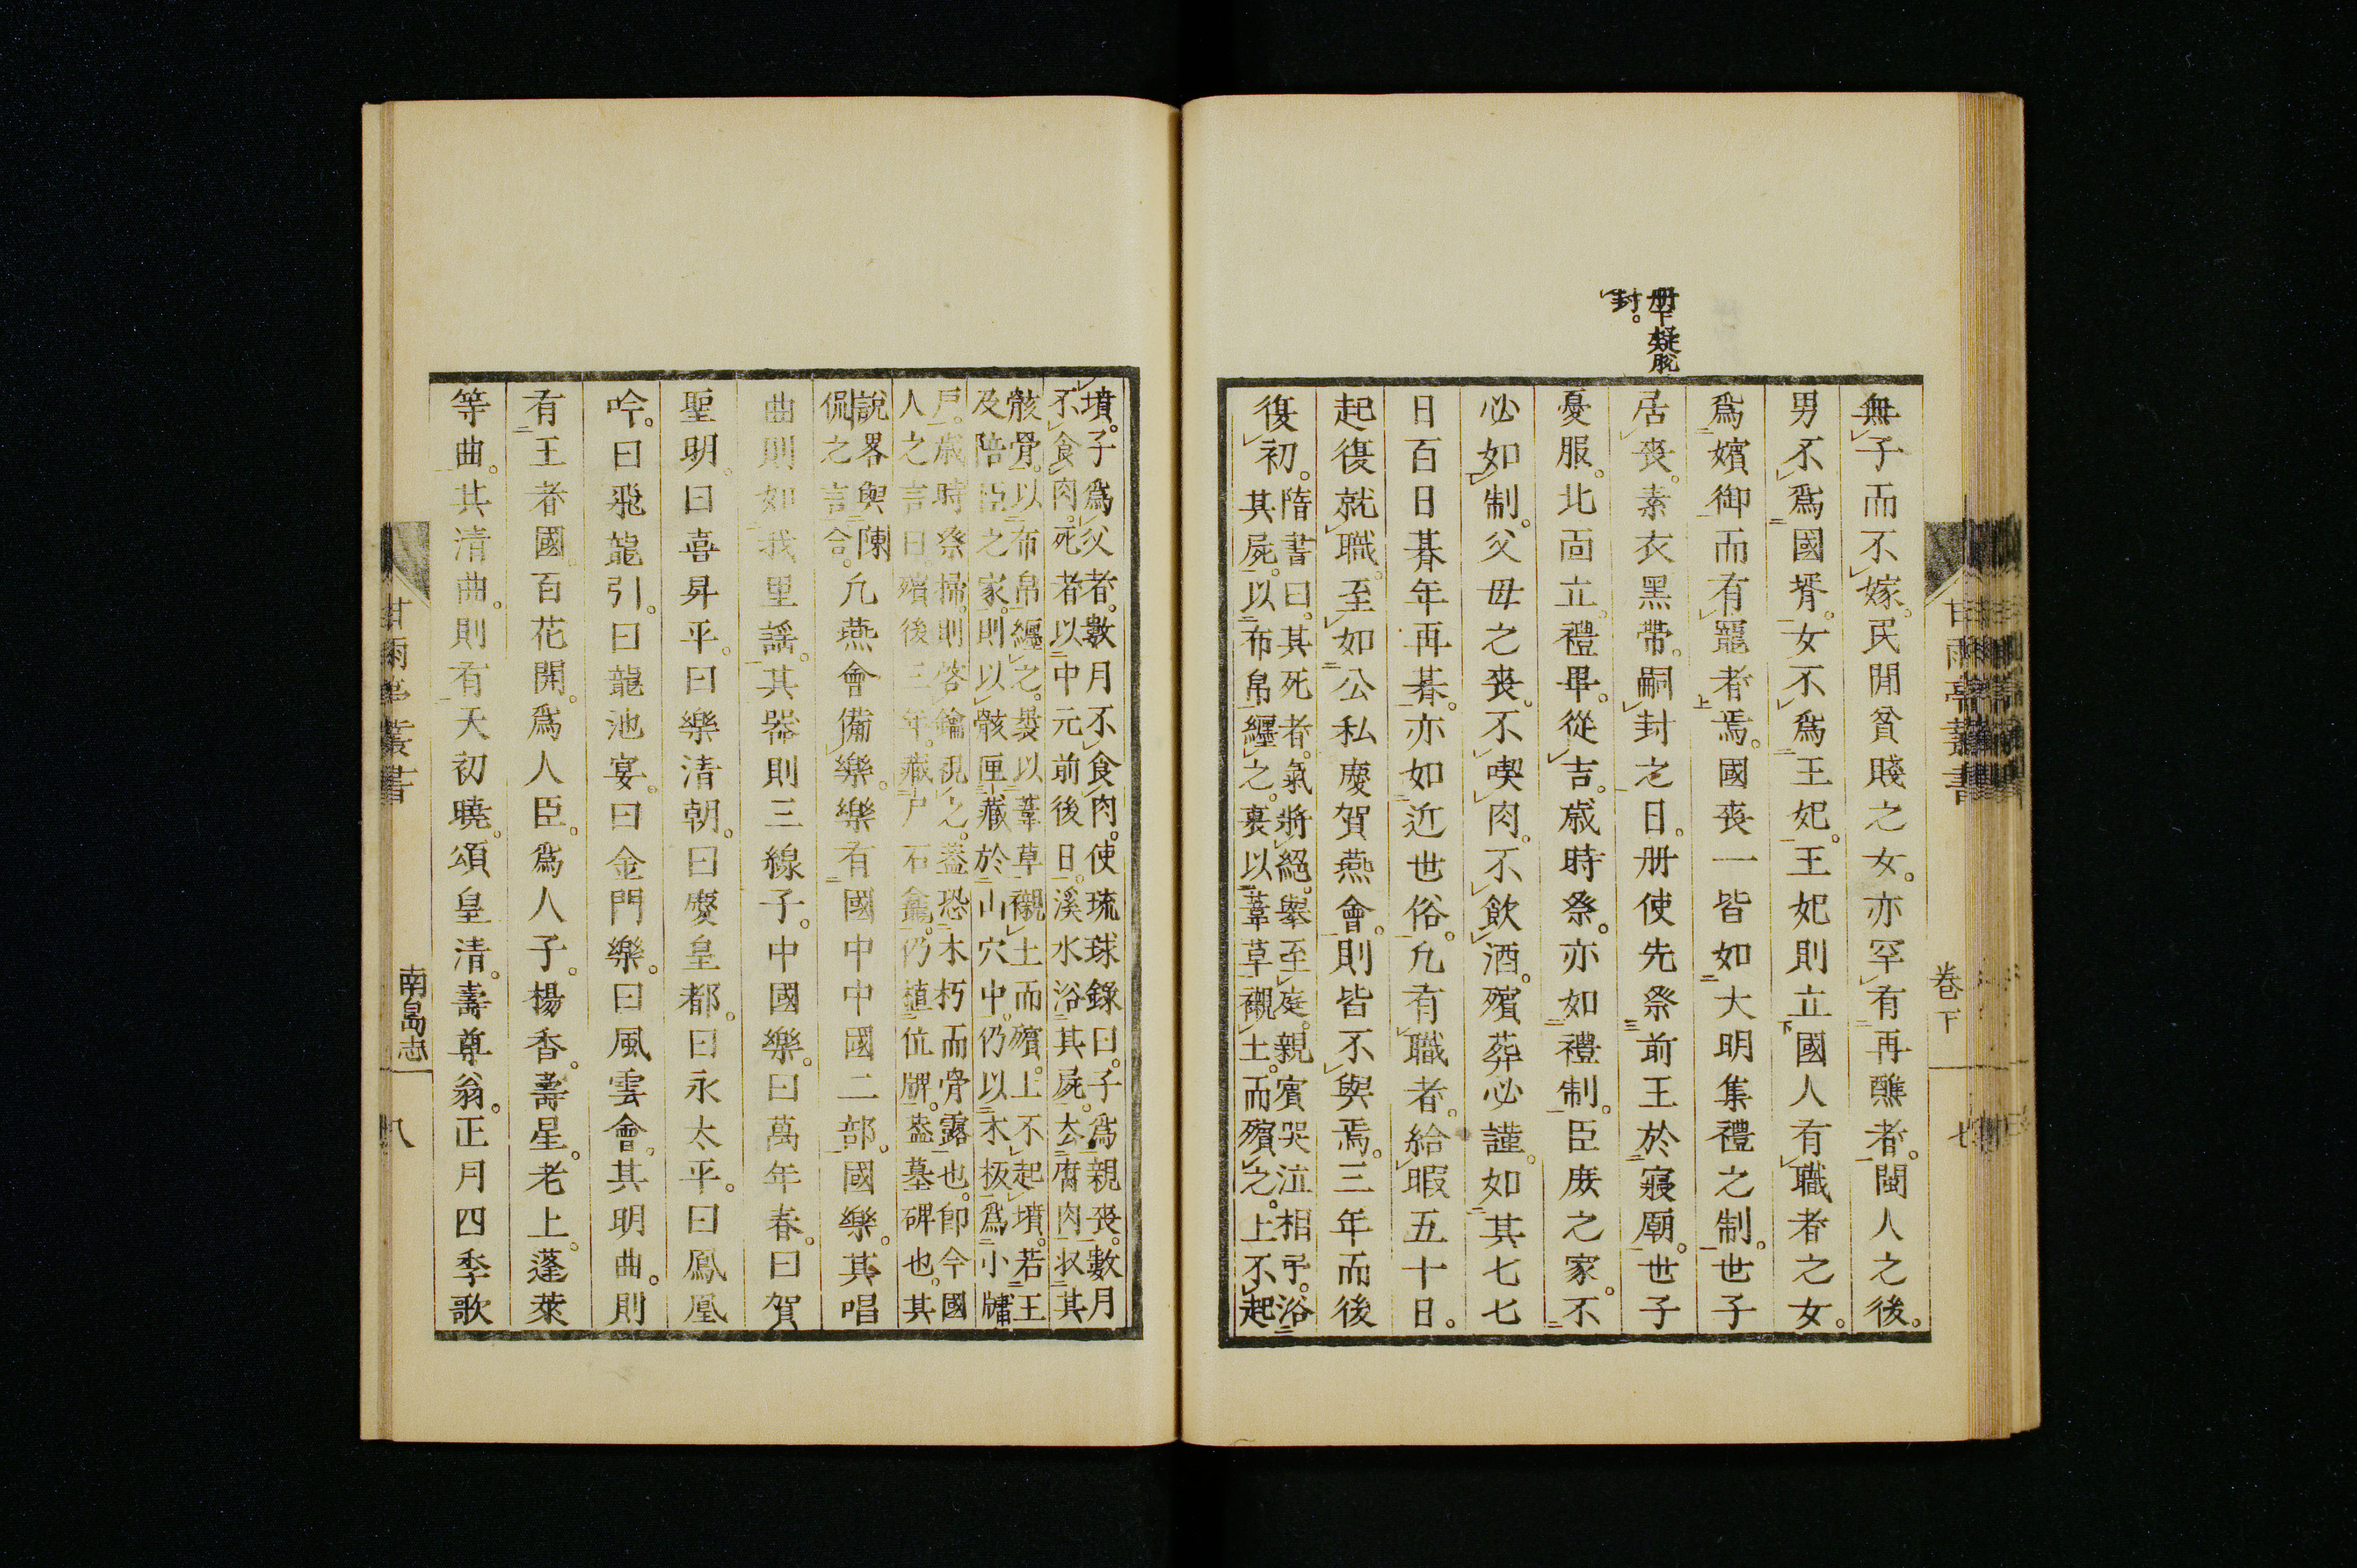 冊下疑脫
封。
無子而不嫁。民閒貧賤之女。亦罕有再醮者。閩人之後。
男不爲國壻。女不爲王妃。王妃則立國人有職者之女。
爲嬪御而有寵者焉。國喪一皆如大明集禮之制。世子
居喪。素衣黑帶。嗣封之日。册使先祭前王於寢廟。世子
憂服。北面立。禮畢。從吉。歲時祭。亦如禮制。臣庶之家。不
必如制。父母之喪。不喫肉。不飲酒。殯葬必謹。如其七七
日百日朞年再朞。亦如近世俗。凢有職者。給暇五十日。
起復就職。至如公私慶賀燕會。則皆不與焉。三年而後
復初。
隋書曰。其死者。氣將絕。擧至庭。親賓哭泣相弔。浴
其屍。以布帛纏之。裹以葦草。襯土。而殯之。上不起
甘雨亭叢書
卷下
七
墳。子爲父者。數月不食肉。使琉球錄曰。子爲親喪。數月
不食肉。死者以中元前後日。溪水浴其屍。去腐肉。收其
骸骨。以布帛纏之。裹以葦草。襯土而殯。上不起墳。若王
及陪臣之家。則以骸匣藏於山穴中。仍以木板爲小牗
戶。歲時祭掃。則啓鑰視之。葢恐木朽而骨露也。卽今國
人之言曰。殯後三年。藏尸石龕。仍植位牌。葢墓碑也。其
說畧與陳
侃之言合。
凢燕會備樂。樂有國中中國二部。國樂。其唱
曲則如我里謠。其器則三線子。中國樂。曰萬年春。曰賀
聖明。曰喜昇平。曰樂清朝。曰慶皇都。曰永太平。曰鳳凰
吟。曰飛龍引。曰龍池宴。曰金門樂。曰風雲會。其明曲。則
有王者國。百花開。爲人臣。爲人子。楊香。壽星。老上。蓬萊
等曲。其清曲。則有天初曉。頌皇清。壽尊翁。正月四季歌
甘雨亭叢書
南島志
八